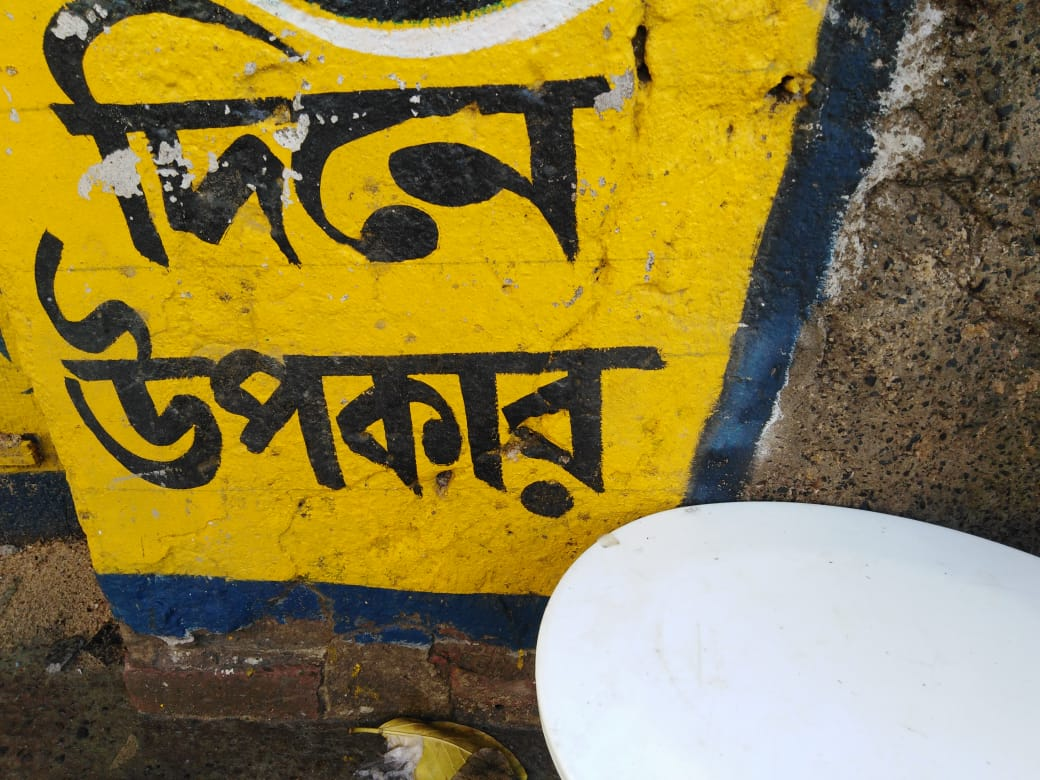 দিনে
উপকার